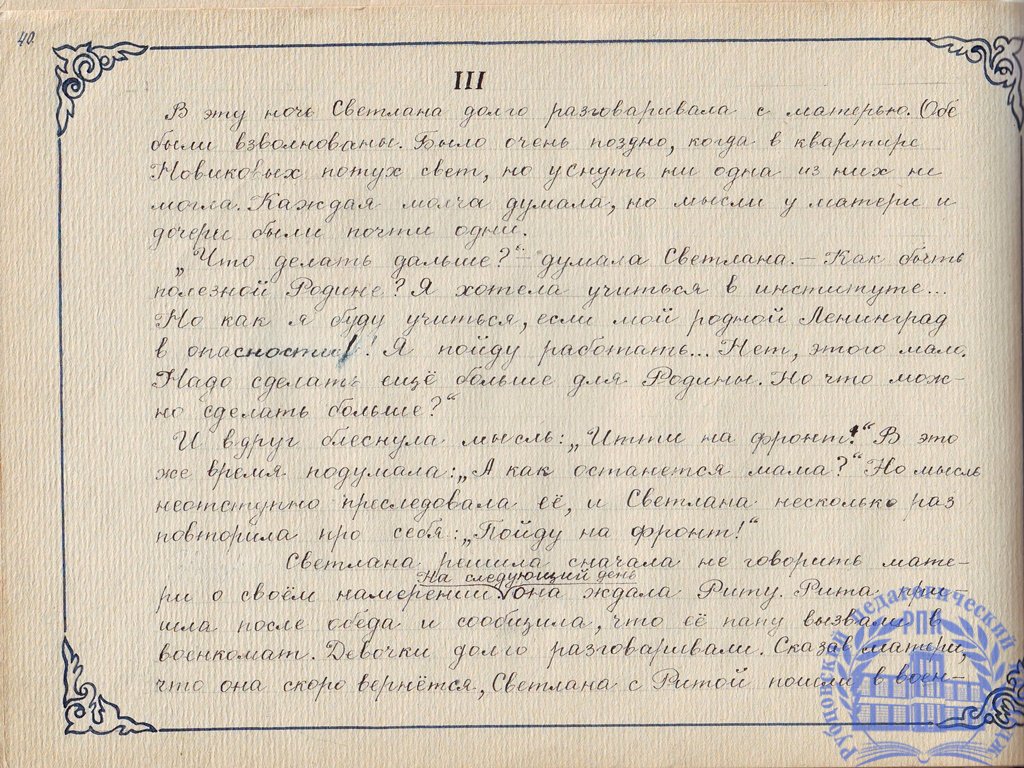 40.
III
В эту ночь Светлана долго разговаривала с матерью. Обе
были взволнованы. Было очень поздно, когда в квартире
Новиковых потух свет, но уснуть ни одна из них не
могла. Каждая молча думала, но мысли у матери и
дочери были почти одни.
„Что делать дальше?“ – думала Светлана. – Как быть
полезной Родине? Я хотела учиться в институте...
Но как я буду учиться, если мой родной Ленинград
в опасности! ! Я пойду работать... Нет, этого мало.
Надо сделать ещё больше для Родины. Но что мож-
но сделать больше?“
И вдруг блеснула мысль: „Итти на фронт!“ В это
же время подумала: „А как останется мама?“ Но мысль
неотступно преследовала её, и Светлана несколько раз
повторила про себя: „Пойду на фронт!“
Светлана решила сначала не говорить мате-
На следующий день
ри о своём намерении. она ждала Риту. Рита при-
шла после обеда и сообщила, что её папу вызвали в
военкомат. Девочки долго разговаривали. Сказав матери,
что она скоро вернётся, Светлана с Ритой пошли в воен-
РПК
педагогический